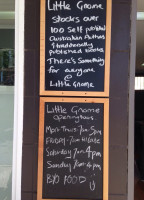 Little Gnome
stocks over
100 Self published
Australian Authors
& traditionally
published books
There's Something
for everyone
@
Little Gnome
Little Gnome
Opening hours
Mon-Thurs 7am-5pm
FRIDAY-7am
Saturday 7am-4pm
Sunday 7am-4pm
BYO FOOD